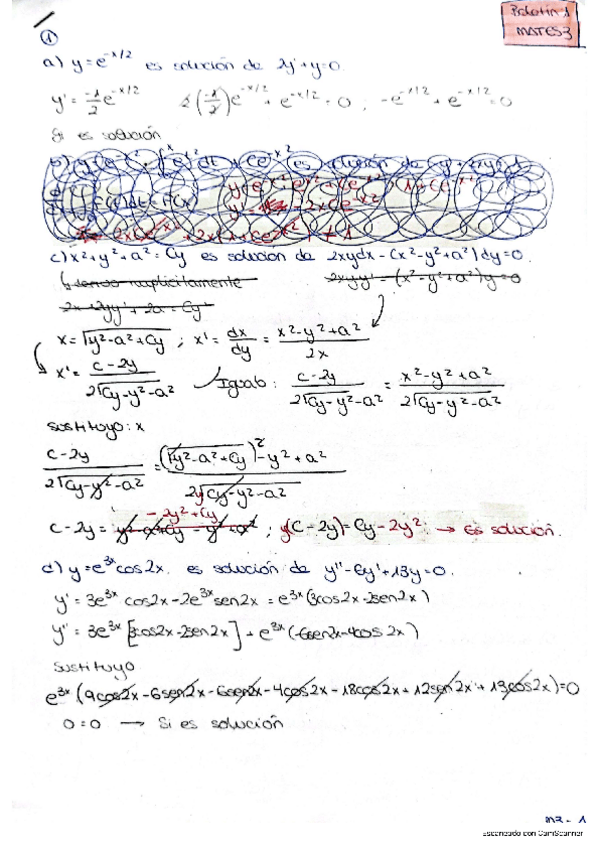 Boletín 1
MATES 3
①
a) y = e^{-x/2} es solución de 2y' + y = 0.
y' = \frac{-1}{2} e^{-x/2}    2(\frac{-1}{2}) e^{-x/2} + e^{-x/2} = 0 ; -e^{-x/2} + e^{-x/2} = 0
Si es solución
c) x² + y² + a² = Cy es solución de 2xydx - (x² - y² + a²) dy = 0.
2xyy' = (x² - y² + a²) y = 0
2x + 2yy' + 2a = Cy'
x = \sqrt{y² - a² + Cy} ; x' = \frac{dx}{dy} = \frac{x² - y² + a²}{2x}
x' = \frac{C - 2y}{2\sqrt{Cy - y² - a²}}    Igualo : \frac{C - 2y}{2\sqrt{Cy - y² - a²}} = \frac{x² - y² + a²}{2\sqrt{Cy - y² - a²}}
Sustituyo: x
\frac{C - 2y}{2\sqrt{Cy - y² - a²}} = \frac{(\sqrt{y² - a² + Cy})² - y² + a²}{2y\sqrt{Cy - y² - a²}}
- 2y² + Cy
C - 2y = y² - a² + Cy - y² + a² ; y(C - 2y) = Cy - 2y² → Es solución.
d) y = e^{3x} cos2x. es solución de y'' - 6y' + 13y = 0.
y' = 3e^{3x} cos2x - 2e^{3x} sen2x = e^{3x} (3cos2x - 2sen2x)
y'' = 3e^{3x} [3cos2x - 2sen2x] + e^{3x} (-6sen2x - 4cos2x)
Sustituyo
e^{3x} (9cos2x - 6sen2x - 6sen2x - 4cos2x - 18cos2x + 12sen2x + 13cos2x) = 0
0 = 0 → Si es solución
M3 - 1
Escaneado con CamScanner